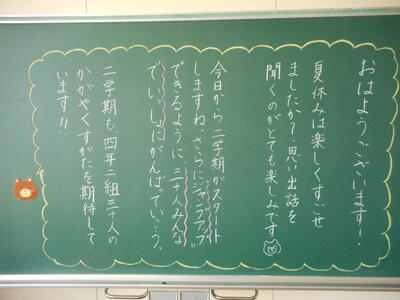 おはようございます！
夏休みは楽しくすごせ
ましたか？思い出話を
聞くのがとても楽しみです
今日から二学期がスタート
しますね。さらに“ジャンプアップ”
できるように、三十人みんな
でいっしょにがんばっていこう。
二学期も、四年二組三十人の
かがやくすがたを期待して
います!!